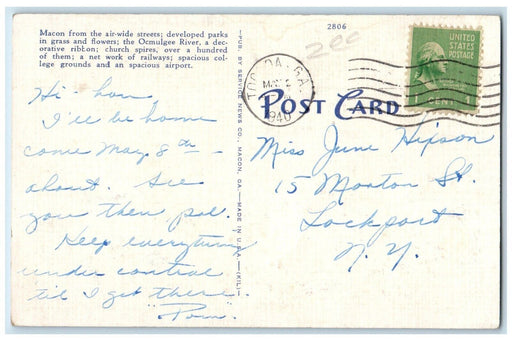 Macon from the air-wide streets; developed parks
in grass and flowers; the Ocmulgee River, a dec-
orative ribbon; church spires, over a hundred
of them; a net work of railways; spacious col-
lege grounds and an spacious airport.
Hi hon
I'll be home
come May 8th –
about. See
you then pal.
Keep everything
under control
'til I get there.
"Pom."
—PUB. BY SERVICE NEWS CO. MACON, GA.—MADE IN U.S.A.
2806
200
GA.
MAY 2
1940
UNITED
STATES
POSTAGE
CENT 1
POST CARD
Miss June Hixson
15 Morton St.
Lockport
N. Y.